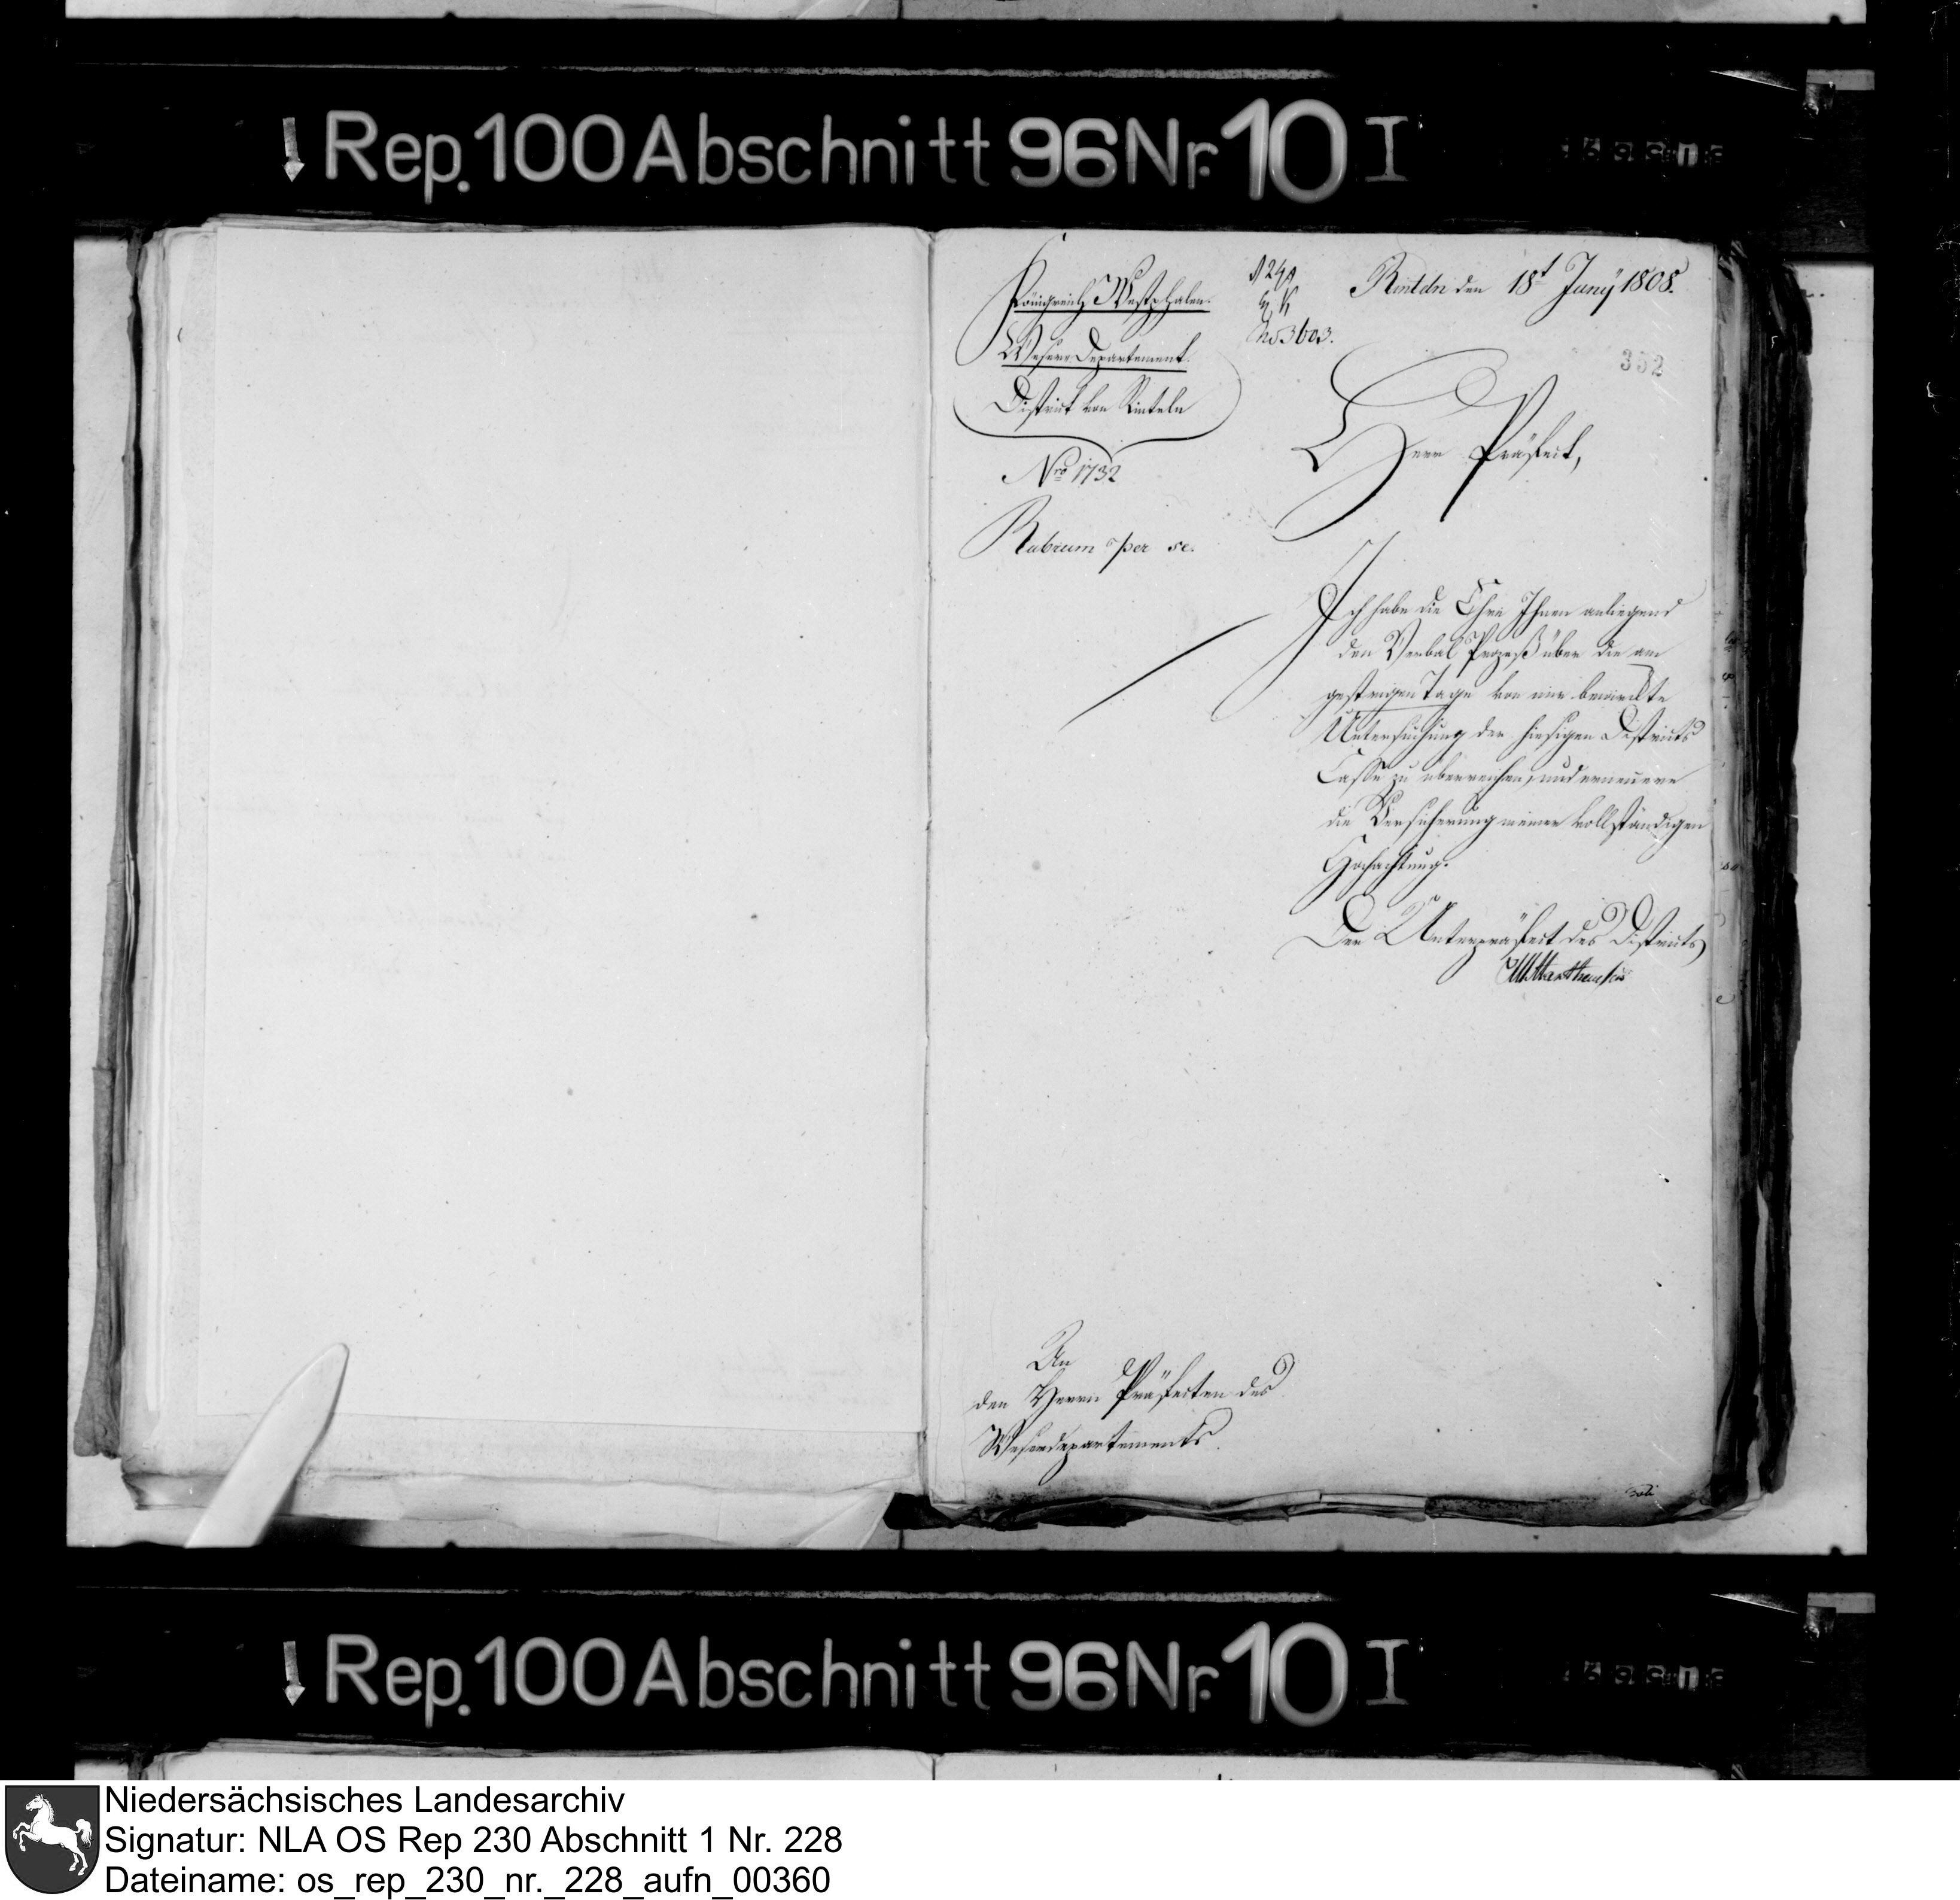 Rep. 100 Abschnitt 96 Nr. 10 I
Königreich Westphalen.
Weser Departement.
District von Rinteln
Nro 1732
Rubrum per se.
No 3603.
Rinteln den 18t Juny 1808.
352
Herr Präfect,
Ich habe die Ehre Ihnen anliegend
den Verbal Prozeß über die am
gestrigen Tage von mir bewirckte
Untersuchung der hiesigen Districts
Casse zu überreichen, und erneuere
die Versicherung meiner vollständigen
Hochachtung.
Der Unterpräfect des Districts
An
den Herrn Präfecten des
Weserdepartements.
Rep. 100 Abschnitt 96 Nr. 10 I
Niedersächsisches Landesarchiv
Signatur: NLA OS Rep 230 Abschnitt 1 Nr. 228
Dateiname: os_rep_230_nr._228_aufn_00360